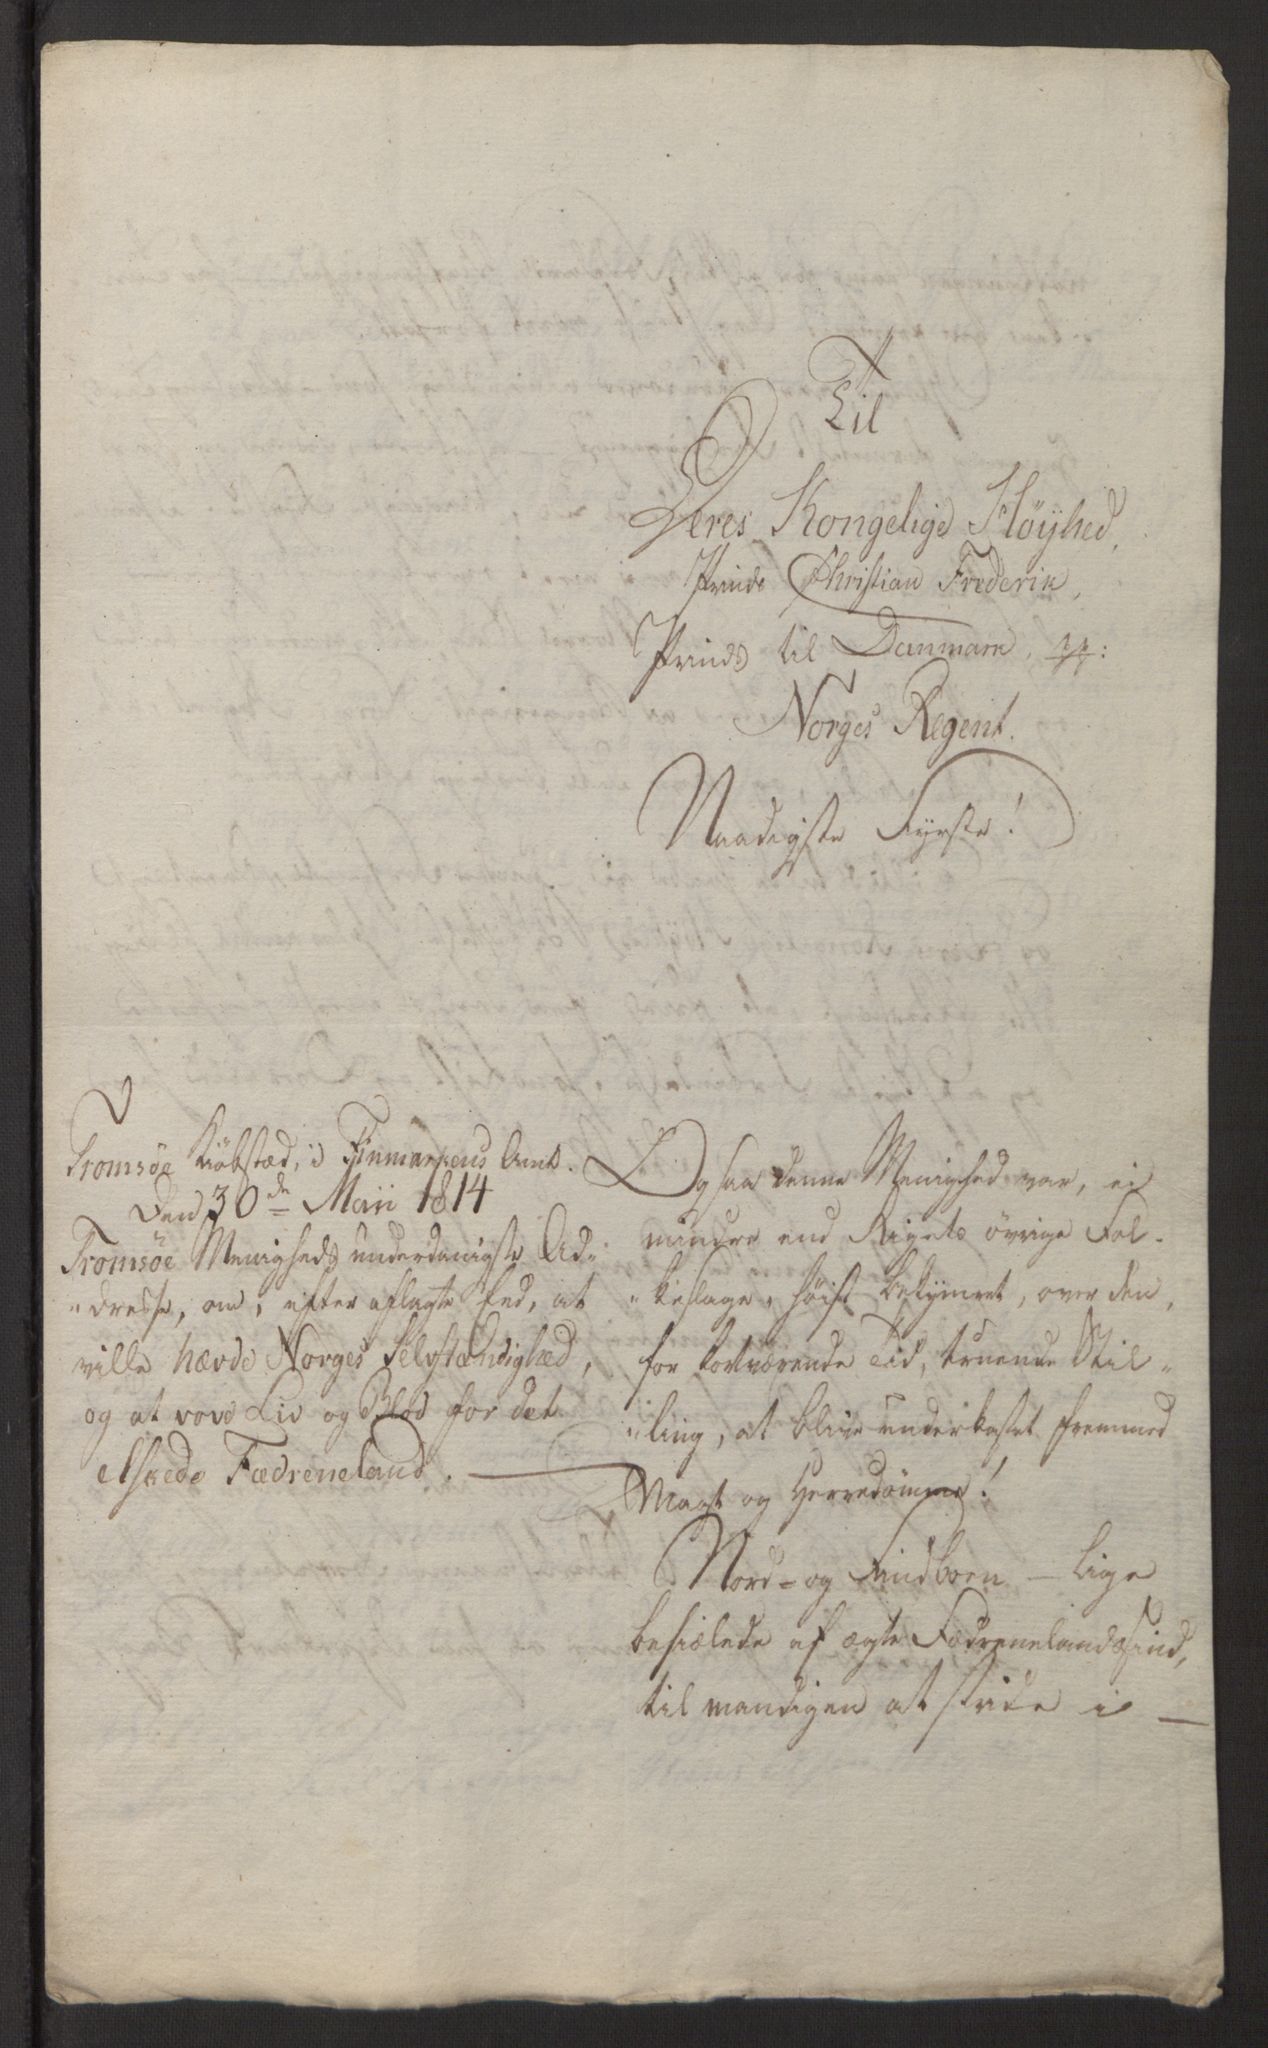 Til
Deres Kongelige Høÿhed,
Prinds Christian Frederik,
Prinds til Danmark, pp:
Norges Regent.
Naadigste Fyrste!
Tromsöe Kiöbstæd, i Finmarkens Amt.
Den 30de Maii 1814
Tromsöe Menigheds underdanigste Ad-
"dresse, om, efter aflagte Eed, at
ville hævde Norges Selvstændighed,
og at vove Liv og Blod for det
elskede Fædreneland.
Ogsaa denne Menighed var, ei
mindre end Rigets övrige Fol-
"keslage, höist bekymret, over den,
for kortværende Tid, truende Stil-
"ling, at blive underkastet fremmed
Magt og Herredömme!
Nord- og Findboen — lige
besiælede af ægte Fædrenelandssind,
til mandigen at stride i —